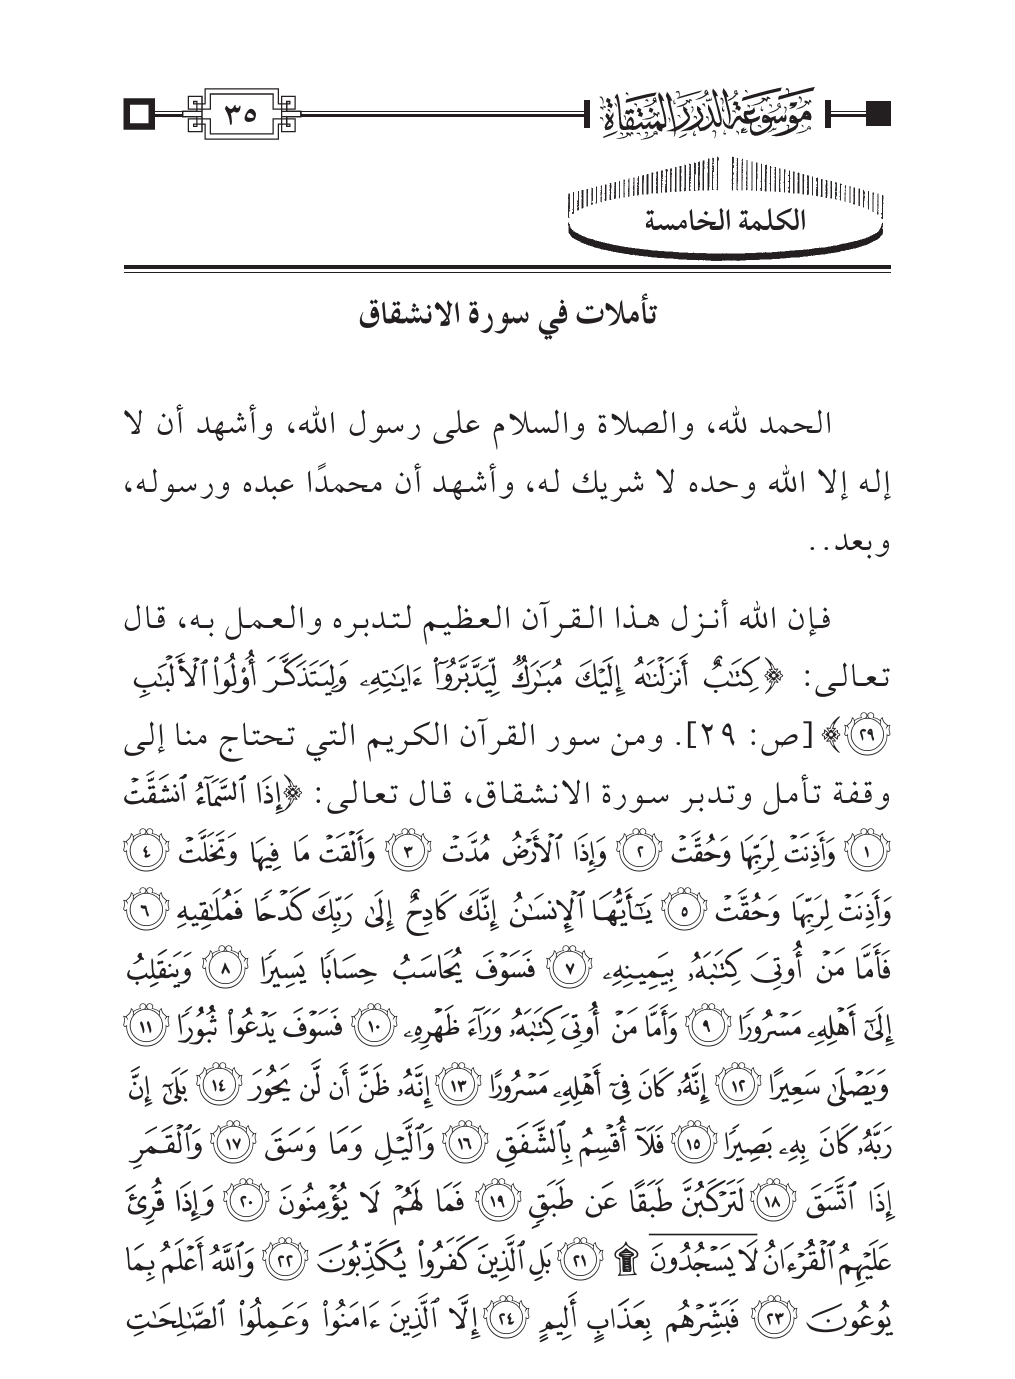 موسوعة الدرر المنتقاة ٣٥
الكلمة الخامسة
تأملات في سورة الانشقاق
الحمد لله، والصلاة والسلام على رسول الله، وأشهد أن لا
إله إلا الله وحده لا شريك له، وأشهد أن محمدًا عبده ورسوله،
وبعد..
فإن الله أنزل هذا القرآن العظيم لتدبره والعمل به، قال
تعالى: ﴿كِتَٰبٌ أَنزَلْنَٰهُ إِلَيْكَ مُبَٰرَكٌ لِّيَدَّبَّرُوٓا۟ ءَايَٰتِهِۦ وَلِيَتَذَكَّرَ أُو۟لُوا۟ ٱلْأَلْبَٰبِ
٢٩﴾ [ص: ٢٩]. ومن سور القرآن الكريم التي تحتاج منا إلى
وقفة تأمل وتدبر سورة الانشقاق، قال تعالى: ﴿إِذَا ٱلسَّمَآءُ ٱنشَقَّتْ
١ وَأَذِنَتْ لِرَبِّهَا وَحُقَّتْ ٢ وَإِذَا ٱلْأَرْضُ مُدَّتْ ٣ وَأَلْقَتْ مَا فِيهَا وَتَخَلَّتْ ٤
وَأَذِنَتْ لِرَبِّهَا وَحُقَّتْ ٥ يَٰٓأَيُّهَا ٱلْإِنسَٰنُ إِنَّكَ كَادِحٌ إِلَىٰ رَبِّكَ كَدْحًا فَمُلَٰقِيهِ ٦
فَأَمَّا مَنْ أُوتِىَ كِتَٰبَهُۥ بِيَمِينِهِۦ ٧ فَسَوْفَ يُحَاسَبُ حِسَابًا يَسِيرًا ٨ وَيَنقَلِبُ
إِلَىٰٓ أَهْلِهِۦ مَسْرُورًا ٩ وَأَمَّا مَنْ أُوتِىَ كِتَٰبَهُۥ وَرَآءَ ظَهْرِهِۦ ١٠ فَسَوْفَ يَدْعُوا۟ ثُبُورًا ١١
وَيَصْلَىٰ سَعِيرًا ١٢ إِنَّهُۥ كَانَ فِىٓ أَهْلِهِۦ مَسْرُورًا ١٣ إِنَّهُۥ ظَنَّ أَن لَّن يَحُورَ ١٤ بَلَىٰٓ إِنَّ
رَبَّهُۥ كَانَ بِهِۦ بَصِيرًا ١٥ فَلَآ أُقْسِمُ بِٱلشَّفَقِ ١٦ وَٱلَّيْلِ وَمَا وَسَقَ ١٧ وَٱلْقَمَرِ
إِذَا ٱتَّسَقَ ١٨ لَتَرْكَبُنَّ طَبَقًا عَن طَبَقٍ ١٩ فَمَا لَهُمْ لَا يُؤْمِنُونَ ٢٠ وَإِذَا قُرِئَ
عَلَيْهِمُ ٱلْقُرْءَانُ لَا يَسْجُدُونَ ۩ ٢١ بَلِ ٱلَّذِينَ كَفَرُوا۟ يُكَذِّبُونَ ٢٢ وَٱللَّهُ أَعْلَمُ بِمَا
يُوعُونَ ٢٣ فَبَشِّرْهُم بِعَذَابٍ أَلِيمٍ ٢٤ إِلَّا ٱلَّذِينَ ءَامَنُوا۟ وَعَمِلُوا۟ ٱلصَّٰلِحَٰتِ